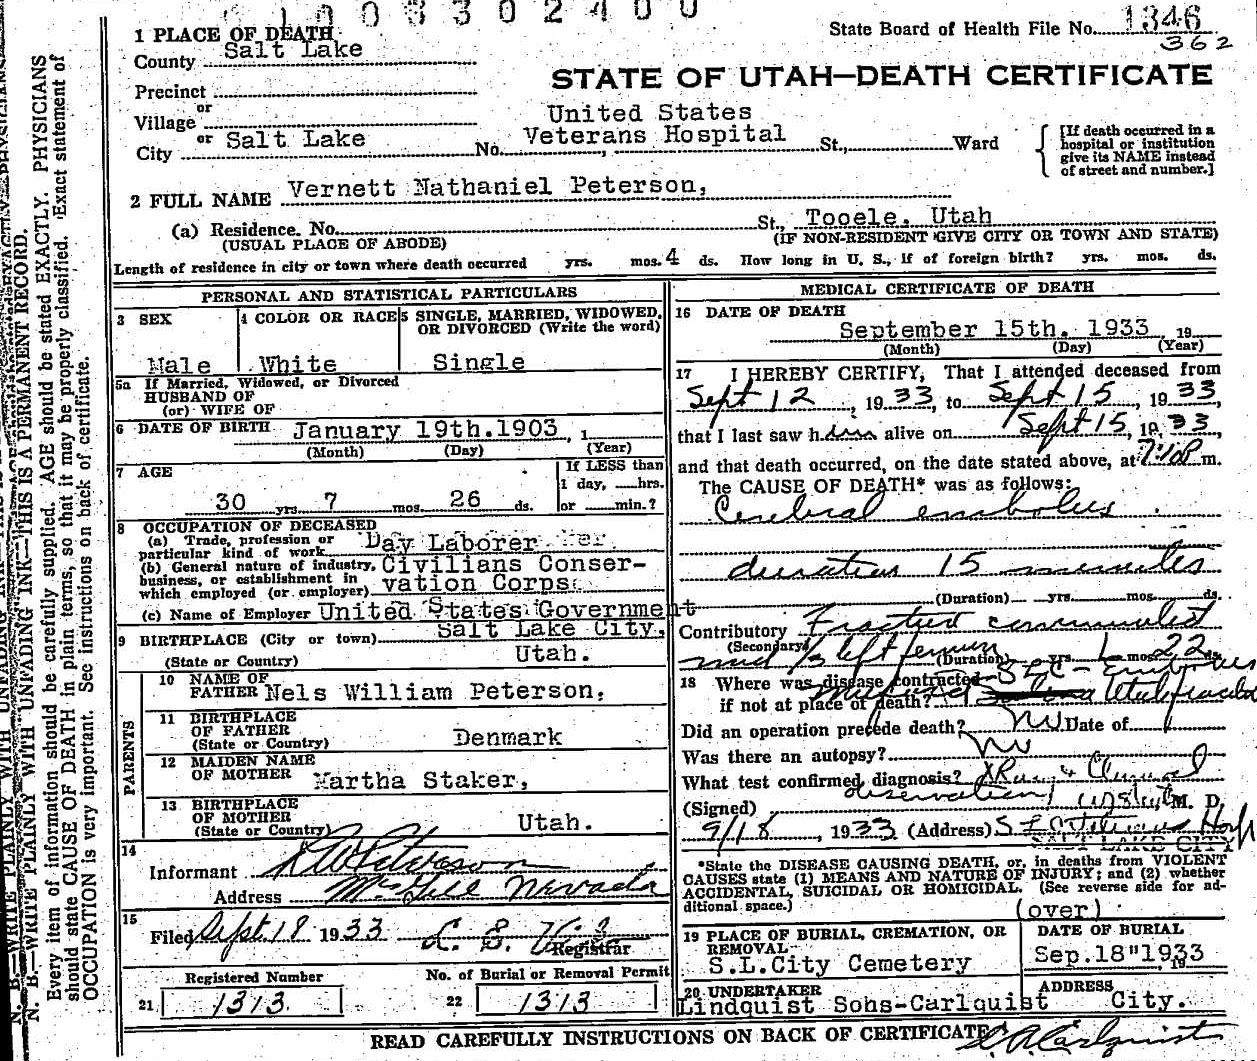 1003302400
State Board of Health File No. 1346
362
1 PLACE OF DEATH
County Salt Lake
STATE OF UTAH—DEATH CERTIFICATE
Precinct
or
Village
or
City Salt Lake No. United States Veterans Hospital St., Ward
[If death occurred in a hospital or institution give its NAME instead of street and number.]
2 FULL NAME Vernett Nathaniel Peterson,
(a) Residence. No. St., Tooele, Utah
(USUAL PLACE OF ABODE) (IF NON-RESIDENT GIVE CITY OR TOWN AND STATE)
Length of residence in city or town where death occurred yrs. mos. 4 ds. How long in U. S., if of foreign birth? yrs. mos. ds.
PERSONAL AND STATISTICAL PARTICULARS
3 SEX
Male
4 COLOR OR RACE
White
5 SINGLE, MARRIED, WIDOWED,
OR DIVORCED (Write the word)
Single
5a If Married, Widowed, or Divorced
HUSBAND OF
(or) WIFE OF
6 DATE OF BIRTH January 19th.1903, 1
(Month) (Day) (Year)
7 AGE
30 yrs. 7 mos. 26 ds.
If LESS than
1 day, hrs.
or min.?
8 OCCUPATION OF DECEASED
(a) Trade, profession or
particular kind of work Day Laborer
(b) General nature of industry,
business, or establishment in
which employed (or employer)
Civilians Conser-
vation Corps
(c) Name of Employer United States Government
9 BIRTHPLACE (City or town) Salt Lake City,
(State or Country) Utah.
PARENTS
10 NAME OF
FATHER Nels William Peterson,
11 BIRTHPLACE
OF FATHER
(State or Country) Denmark
12 MAIDEN NAME
OF MOTHER Martha Staker,
13 BIRTHPLACE
OF MOTHER
(State or Country) Utah.
14
Informant Peterson
Address McGill Nevada
15
Filed Sept. 18 1933
Registrar
Registered Number
21 1313
No. of Burial or Removal Permit
22 1313
MEDICAL CERTIFICATE OF DEATH
16 DATE OF DEATH
September 15th. 1933, 19
(Month) (Day) (Year)
17 I HEREBY CERTIFY, That I attended deceased from
Sept 12, 1933, to Sept 15, 1933
that I last saw him alive on Sept 15, 1933,
and that death occurred, on the date stated above, at 7:10P m.
The CAUSE OF DEATH* was as follows:
Cerebral embolus
duration 15 minutes
(Duration) yrs. mos. ds.
Contributory Fracture comminuted
(Secondary) mid 1/3 left femur (Duration) yrs. 1 mos. 22 ds.
18 Where was disease contracted SLC - Embolus
if not at place of death? Utah
Did an operation precede death? No Date of
Was there an autopsy? No
What test confirmed diagnosis? XRay & Clinical
observation
(Signed) M. D.
9/18, 1933 (Address) S L C Veterans Hosp
SALT LAKE CITY
*State the DISEASE CAUSING DEATH, or, in deaths from VIOLENT
CAUSES state (1) MEANS AND NATURE OF INJURY; and (2) whether
ACCIDENTAL, SUICIDAL OR HOMICIDAL. (See reverse side for ad-
ditional space.) (over)
19 PLACE OF BURIAL, CREMATION, OR
REMOVAL
S.L.City Cemetery
DATE OF BURIAL
Sep.18"1933, 19
20 UNDERTAKER
Lindquist Sons-Carlquist
ADDRESS
City.
READ CAREFULLY INSTRUCTIONS ON BACK OF CERTIFICATE Carlquist
N. B.—WRITE PLAINLY WITH UNFADING INK—THIS IS A PERMANENT RECORD.
Every item of information should be carefully supplied. AGE should be stated EXACTLY. PHYSICIANS
should state CAUSE OF DEATH in plain terms, so that it may be properly classified. Exact statement of
OCCUPATION is very important. See instructions on back of certificate.